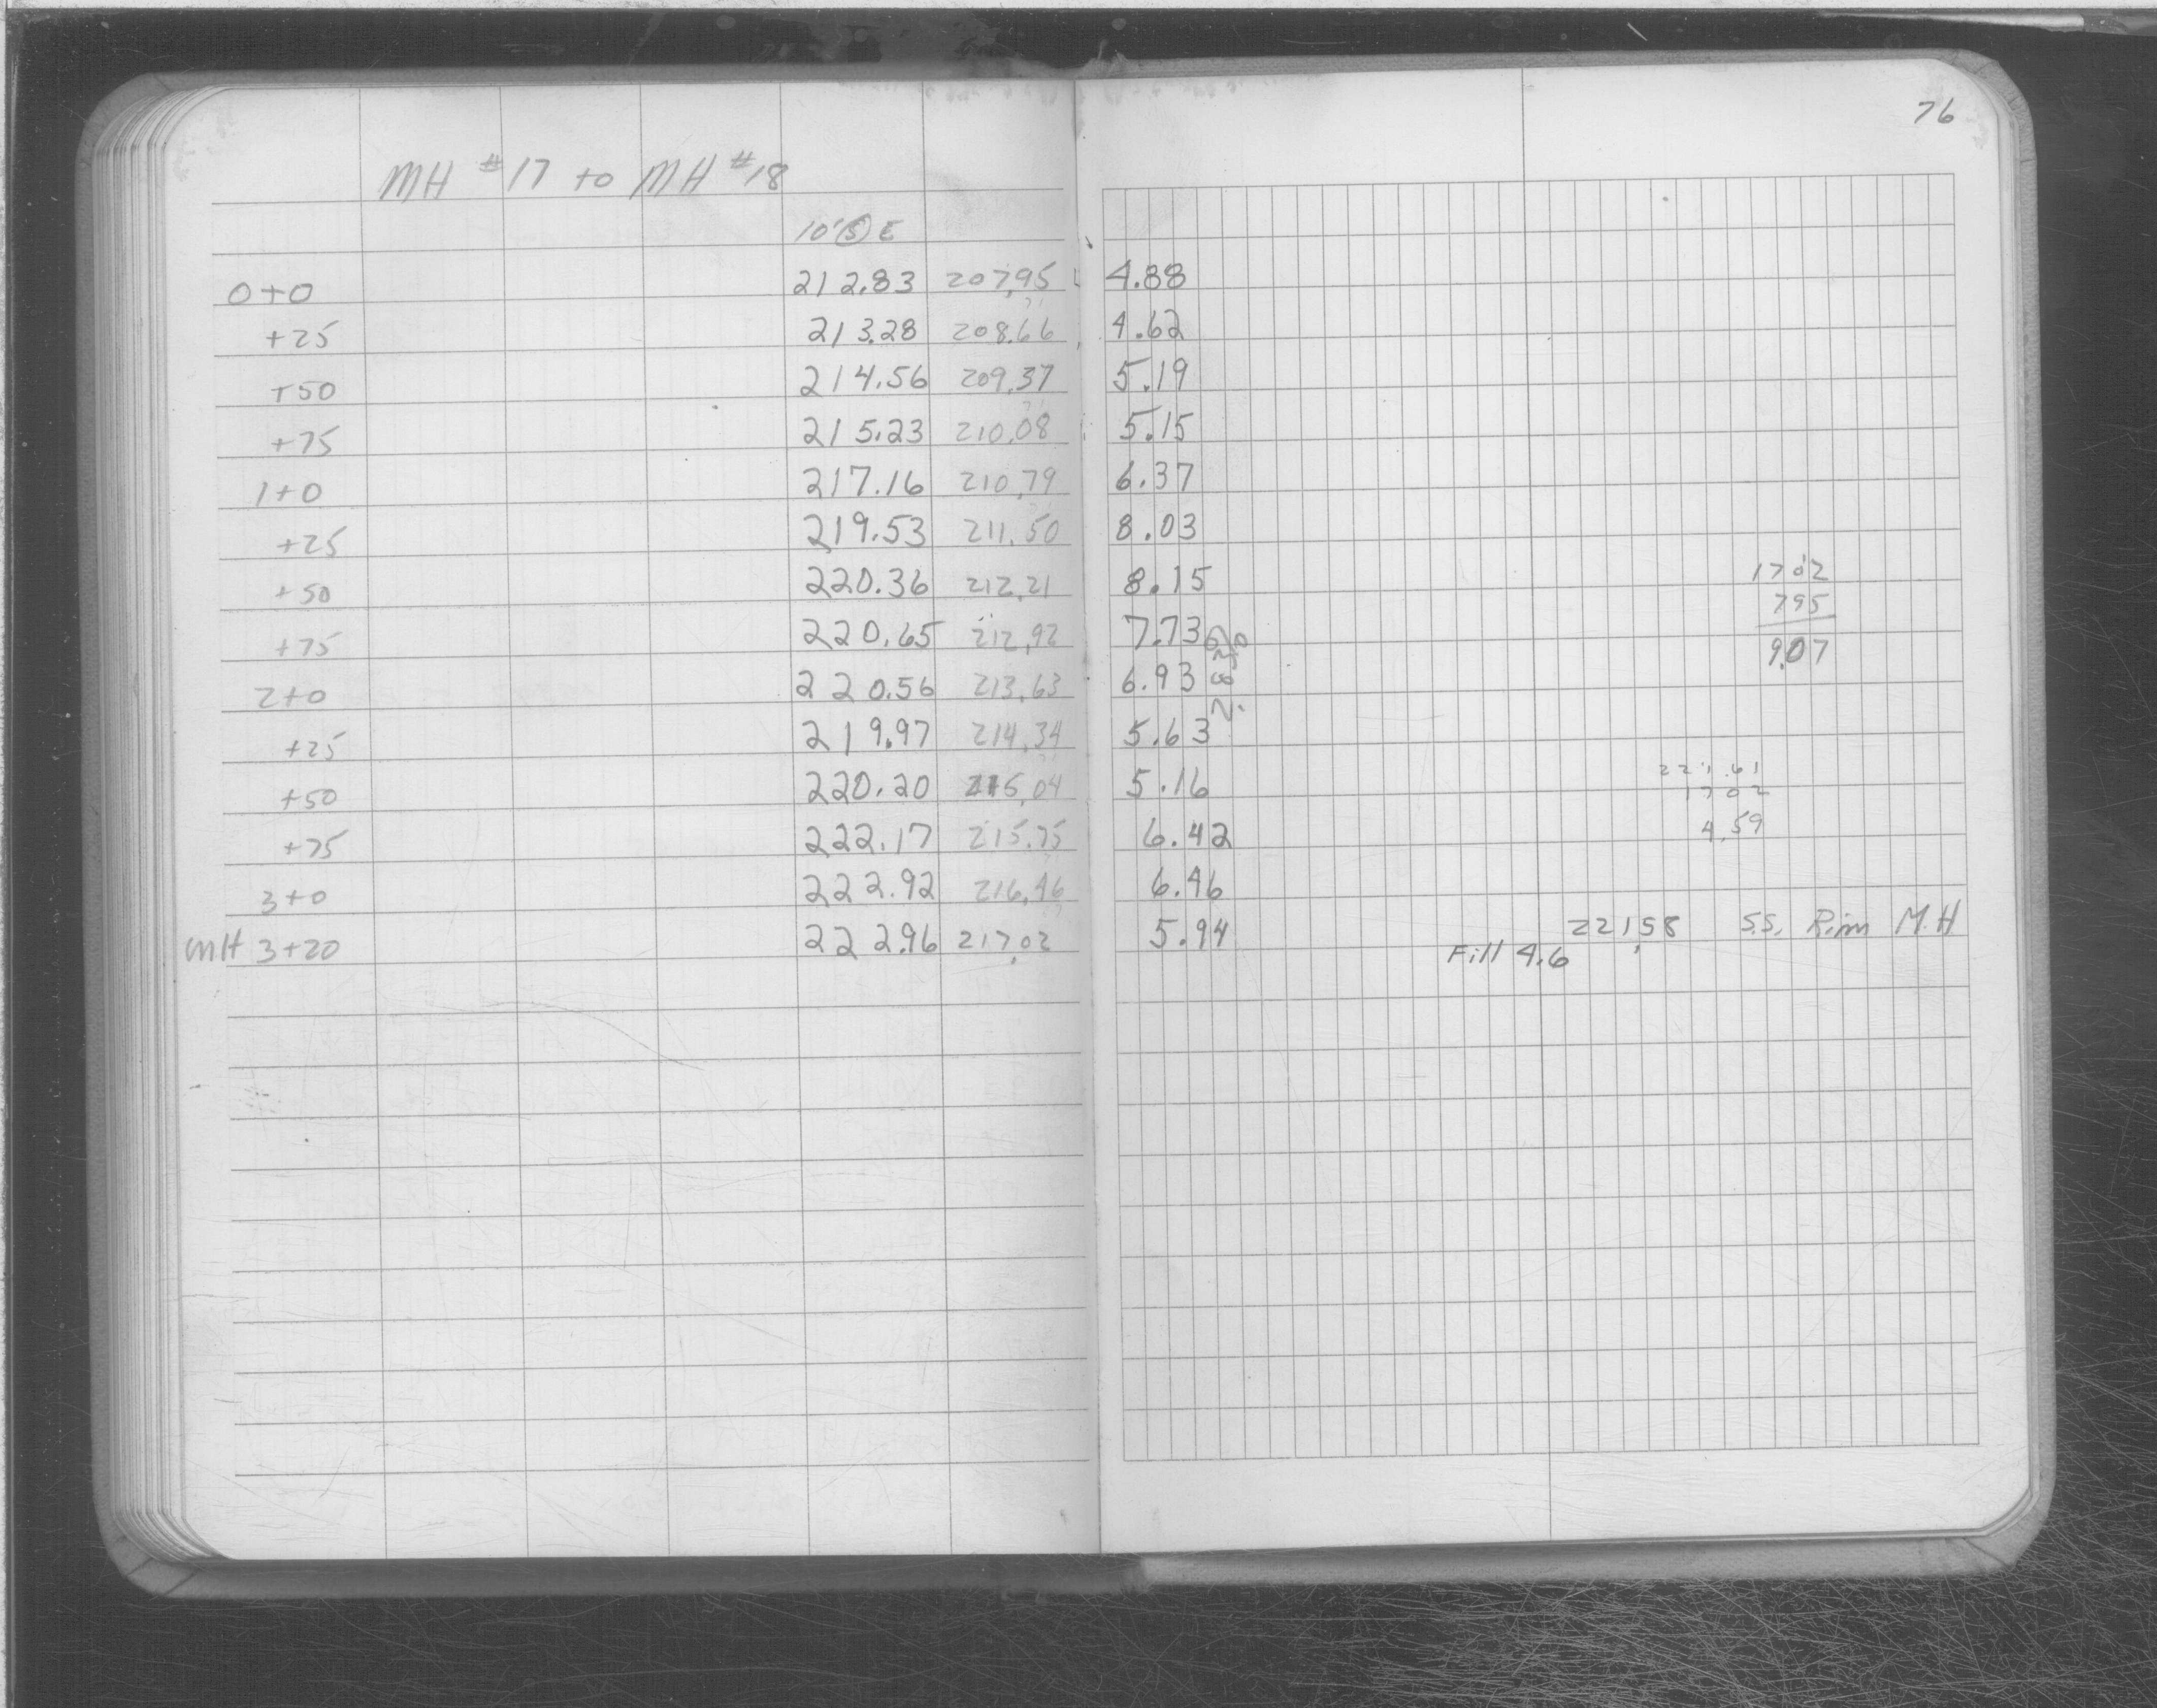 76
MH #17 to MH #18
10' (S) E
0+0 212.83 207.95 4.88
+25 213.28 208.66 4.62
+50 214.56 209.37 5.19
+75 215.23 210.08 5.15
1+0 217.16 210.79 6.37
+25 219.53 211.50 8.03
+50 220.36 212.21 8.15
+75 220.65 212.92 7.73
2+0 220.56 213.63 6.93
+25 219.97 214.34 5.63
+50 220.20 215.04 5.16
+75 222.17 215.75 6.42
3+0 222.92 216.46 6.46
MH 3+20 222.96 217.02 5.94
2.83%
1702
795
9.07
221.61
1702
4.59
221.58 S.S. Rim M.H
Fill 4.6